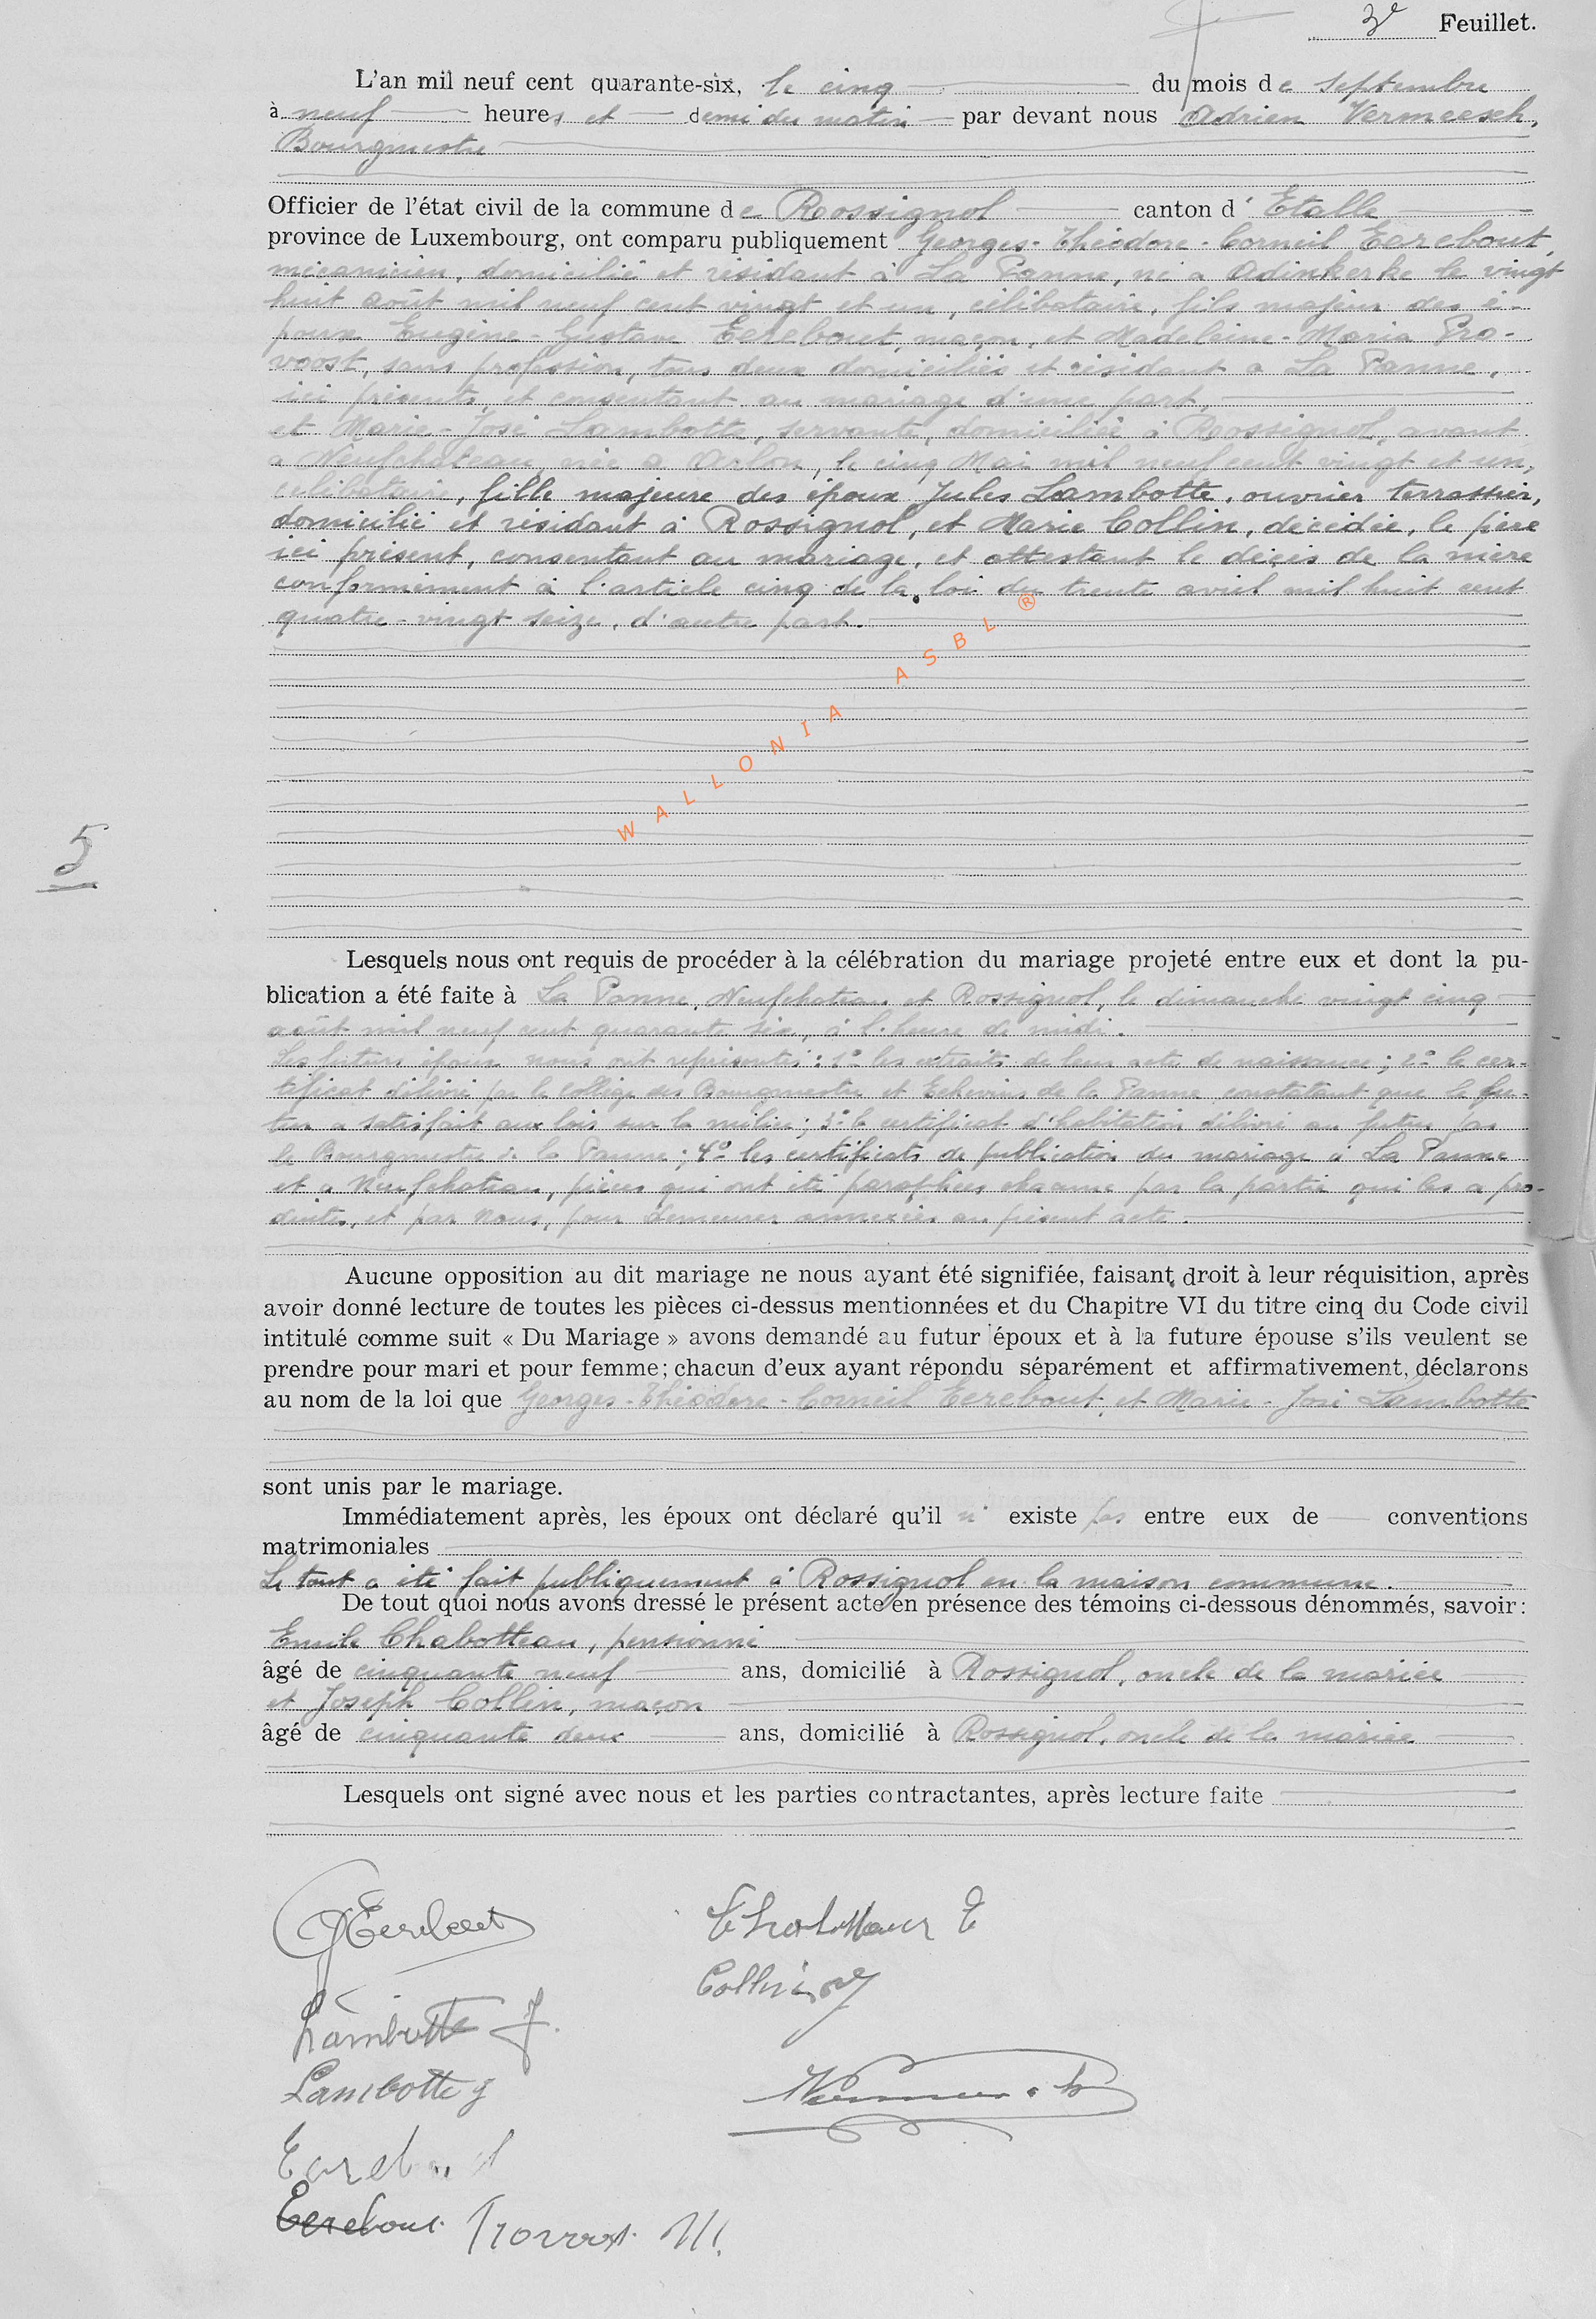 3e Feuillet.
L'an mil neuf cent quarante-six, le cinq du mois de septembre
à neuf heures et demi du matin par devant nous Adrien Vermeesch,
Bourgmestre
Officier de l'état civil de la commune de Rossignol canton d' Etalle
province de Luxembourg, ont comparu publiquement Georges-Théodore-Corneil Eerebout,
mécanicien, domicilié et résidant à La Panne, né à Adinkerke le vingt
huit août mil neuf cent vingt et un, célibataire, fils majeur des é-
poux Eugène-Gustave Eerebout, maçon, et Madeleine-Maria Pro-
voost, sans profession, tous deux domiciliés et résidant à La Panne,
ici présents, et consentant au mariage d'une part,
et Marie-José Lambotte, servante, domiciliée à Rossignol, avant
à Neufchateau, née à Arlon, le cinq Mai mil neuf cent vingt et un,
célibataire, fille majeure des époux Jules Lambotte, ouvrier terrassier,
domicilié et résidant à Rossignol, et Marie Collin, décédée, le père
ici présent, consentant au mariage, et attestant le décès de la mère
conformément à l'article cinq de la loi du trente avril mil huit cent
quatre-vingt seize, d'autre part.
WALLONIA ASBL ®
5
Lesquels nous ont requis de procéder à la célébration du mariage projeté entre eux et dont la pu-
blication a été faite à La Panne, Neufchateau et Rossignol, le dimanche vingt cinq
août mil neuf cent quarante six, à l'heure de midi.
Les futurs époux nous ont représenté : 1° les extraits de leur acte de naissance ; 2° le cer-
tificat délivré par le Collège des Bourgmestre et Echevins de La Panne constatant que le fu-
tur a satisfait aux lois sur la milice ; 3° le certificat d'habitation délivré au futur par
le Bourgmestre de La Panne ; 4° les certificats de publication du mariage à La Panne
et à Neufchateau, pièces qui ont été paraphées chacune par la partie qui les a pro-
duites, et par Nous, pour demeurer annexées au présent acte.
Aucune opposition au dit mariage ne nous ayant été signifiée, faisant droit à leur réquisition, après
avoir donné lecture de toutes les pièces ci-dessus mentionnées et du Chapitre VI du titre cinq du Code civil
intitulé comme suit « Du Mariage » avons demandé au futur époux et à la future épouse s'ils veulent se
prendre pour mari et pour femme; chacun d'eux ayant répondu séparément et affirmativement, déclarons
au nom de la loi que Georges-Théodore-Corneil Eerebout, et Marie-José Lambotte
sont unis par le mariage.
Immédiatement après, les époux ont déclaré qu'il n' existe pas entre eux de conventions
matrimoniales
Le tout a été fait publiquement à Rossignol en la maison commune.
De tout quoi nous avons dressé le présent acte en présence des témoins ci-dessous dénommés, savoir :
Emile Chabotteau, pensionné
âgé de cinquante neuf ans, domicilié à Rossignol, oncle de la mariée
et Joseph Collin, maçon
âgé de cinquante deux ans, domicilié à Rossignol, oncle de la mariée
Lesquels ont signé avec nous et les parties contractantes, après lecture faite
GEerebout
Chabotteaux E
Collin J
Lambotte J.
Lambotte J
Vermeesch
Eerebout
Eerebout Provoost M.